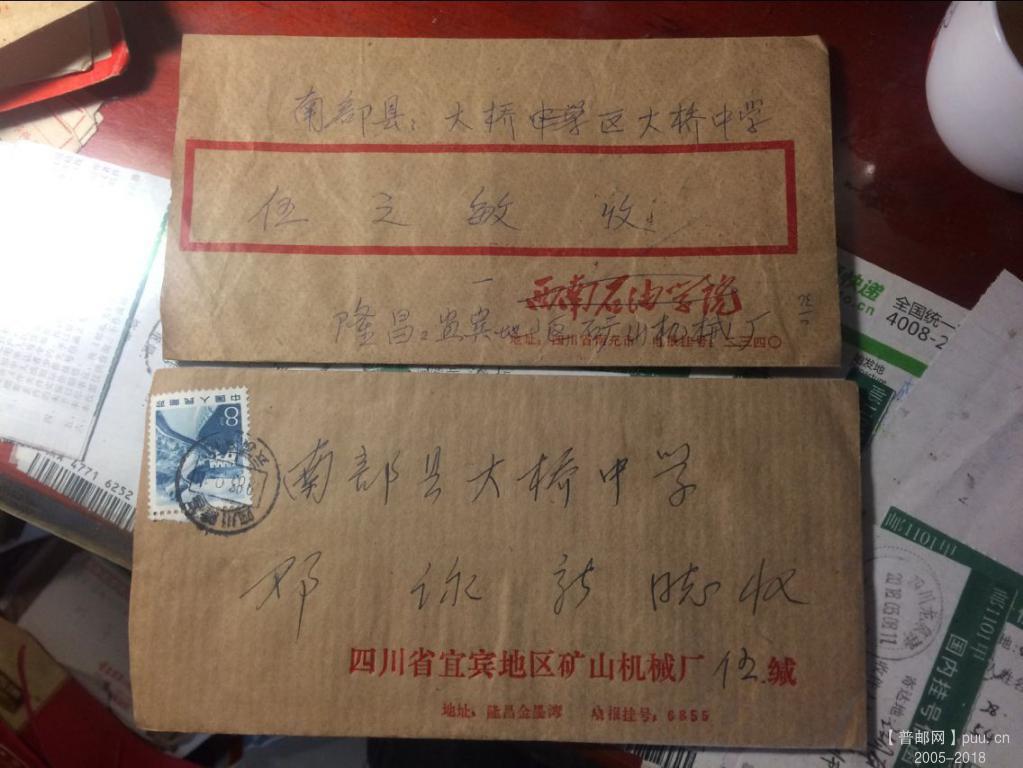 南部县：大桥中学区大桥中学
伍之敏 收
西南石油学院
隆昌：宜宾地区矿山机械厂
地址：四川省南充市 电报挂号：二三四〇
8
中国人民邮政
南部县大桥中学
邓 新 收
四川省宜宾地区矿山机械厂 伍 缄
地址：隆昌金墨湾 电报挂号：6855
4771 6252
快递
全国统一
4008-2
国内挂号信
2018.05.08.11
【普邮网】puu.cn
2005-2018